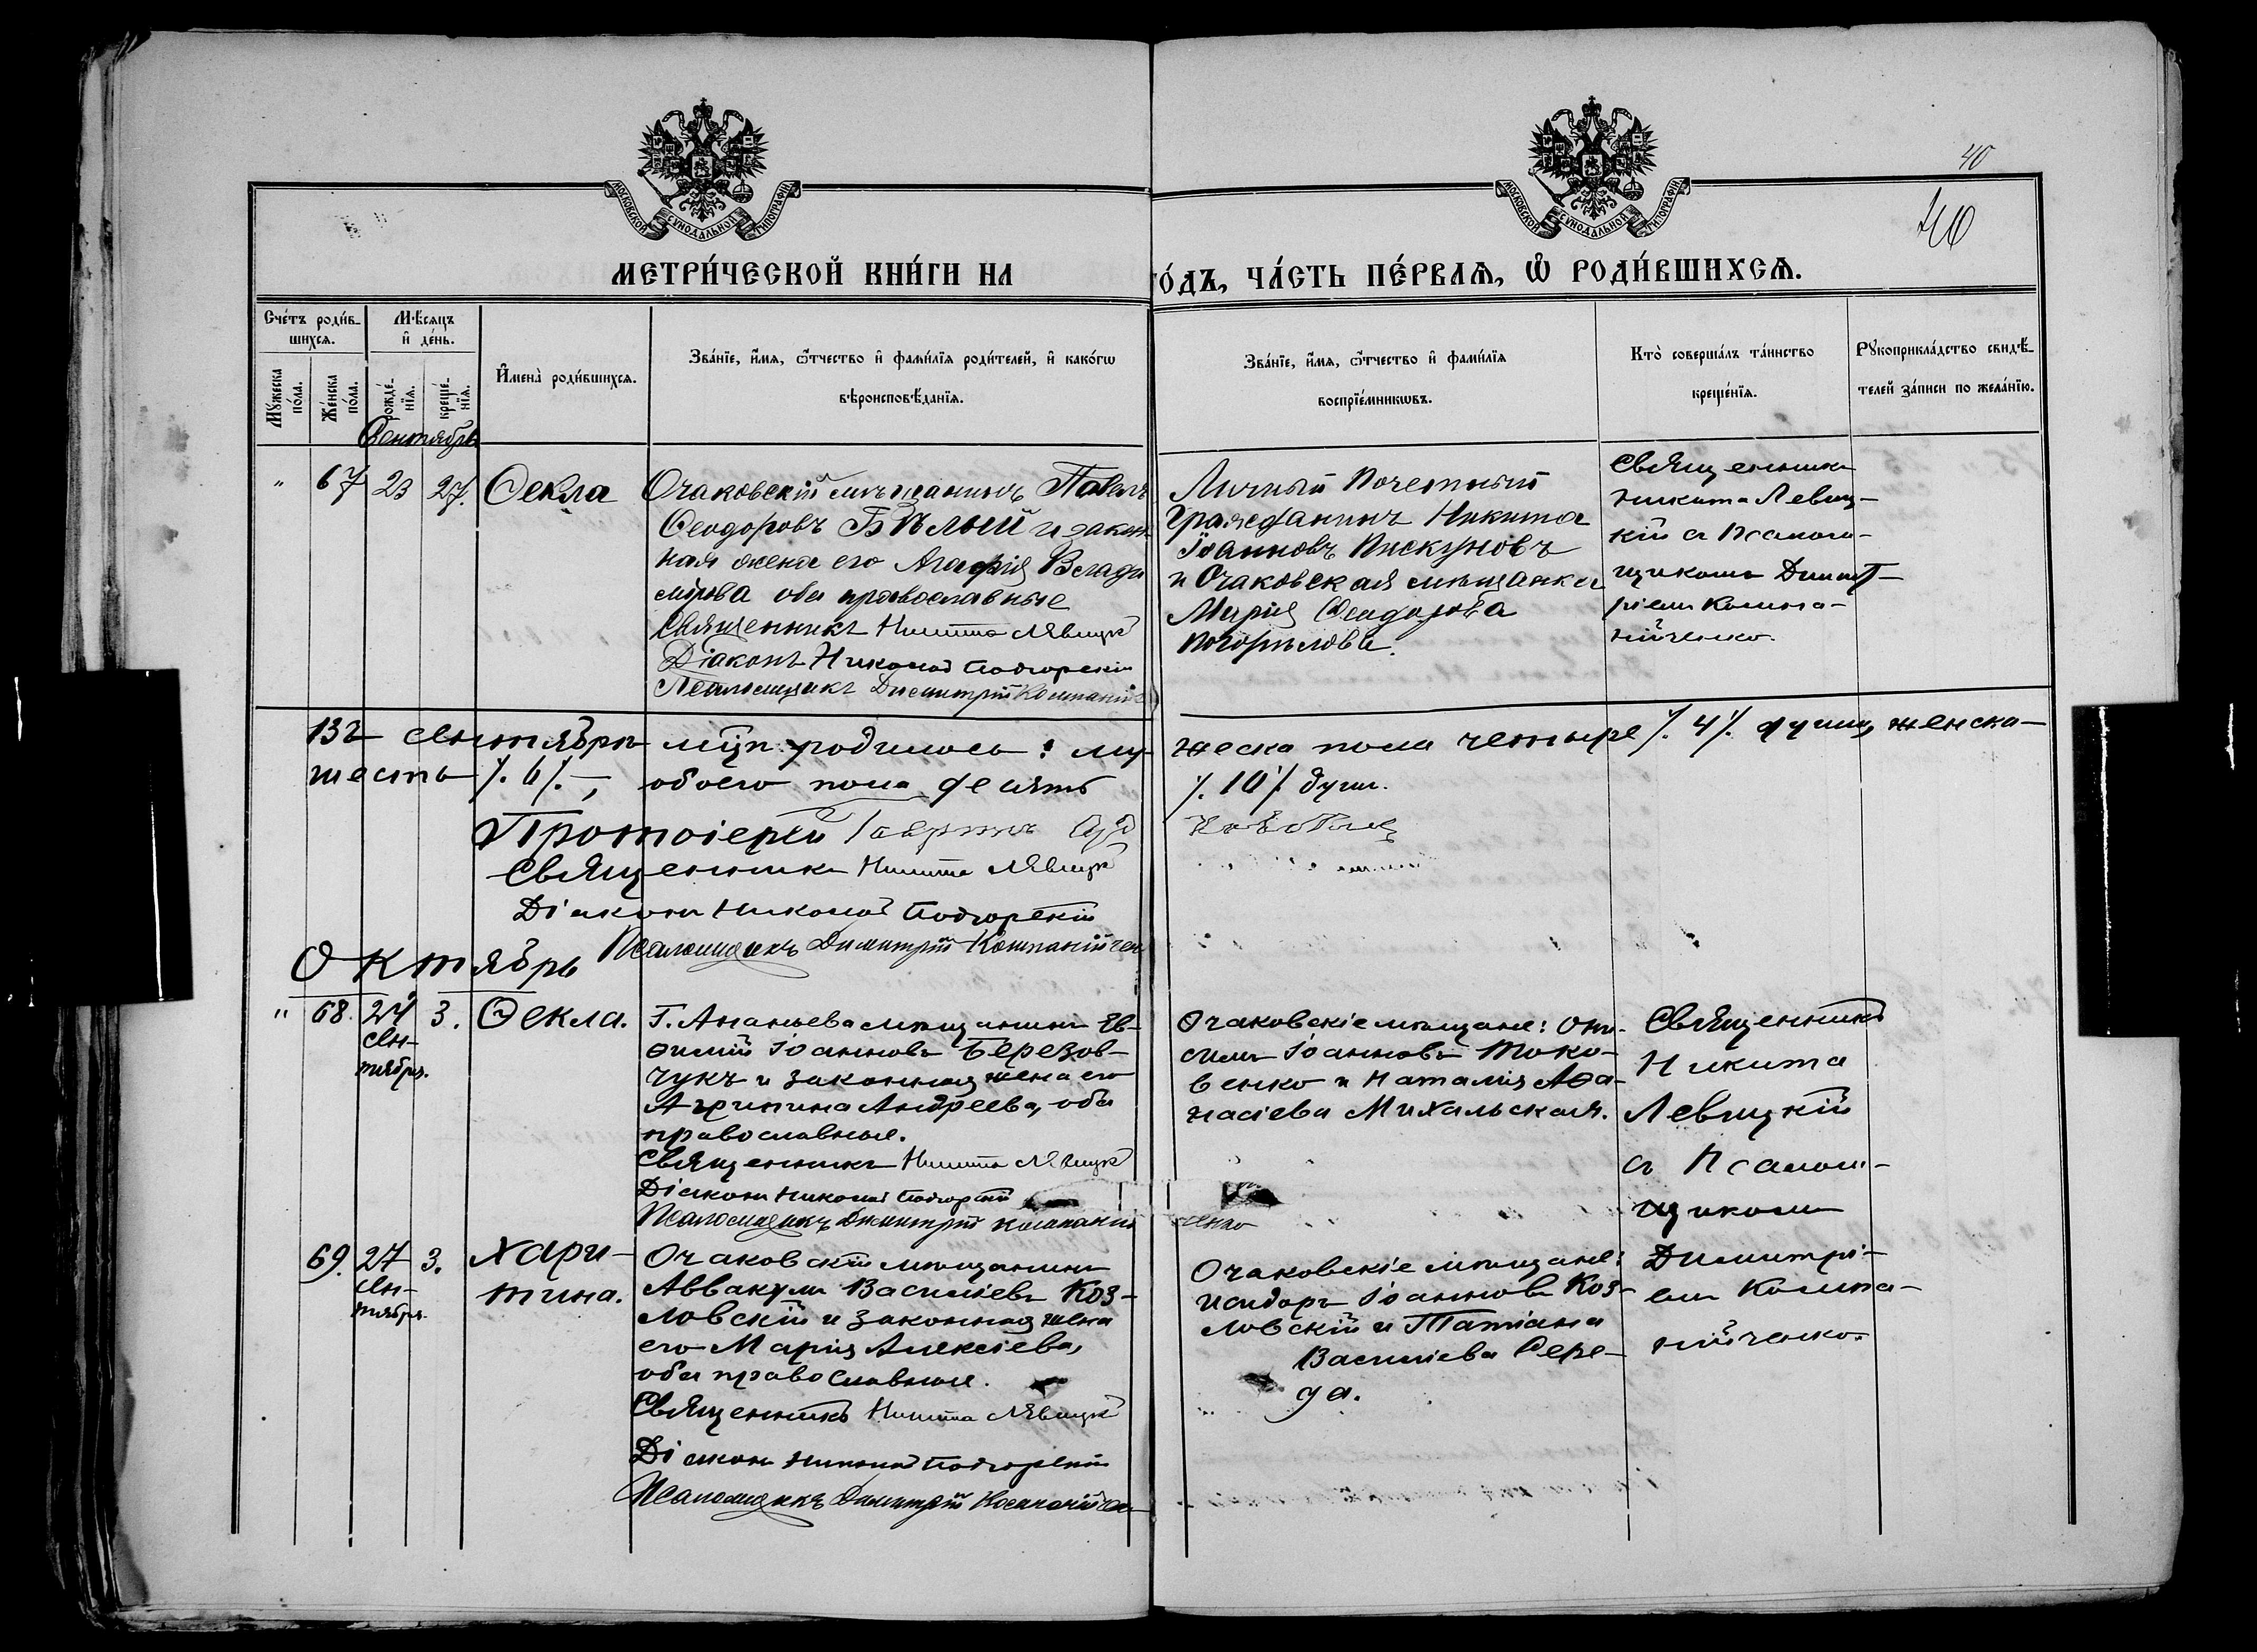 40
40
МОСКОВСКОЙ СѴНОДАЛЬНОЙ ТИПОГРАФІИ
МОСКОВСКОЙ СѴНОДАЛЬНОЙ ТИПОГРАФІИ
МЕТРИ́ЧЕСКОЙ КНИ́ГИ НА
ГО́ДЪ, ЧА́СТЬ ПЕ́РВАѦ, Ѡ҆ РОДИ́ВШИХСѦ.
Сче́тъ роди́в-
шихсѧ.
Мѣ́сѧцъ
и҆ де́нь.
Мꙋ́жеска
по́ла.
Же́нска
по́ла.
рожде́-
нїѧ.
креще́-
нїѧ.
И҆мена̀ роди́вшихсѧ.
Зва́нїе, и҆́мѧ, ѻ҆́тчество и҆ фами́лїѧ роди́телей, и҆ како́гѡ
вѣроисповѣ́данїѧ.
Зва́нїе, и҆́мѧ, ѻ҆́тчество и҆ фами́лїѧ
воспрїе́мникѡвъ.
Кто̀ соверша́лъ та́инство
креще́нїѧ.
Рꙋкоприкла́дство свидѣ́-
телей за́писи по жела́нїю.
Сентябрь
" 67 23 27. Ѳекла
Очаковскій мѣщанинъ Павелъ
Ѳеодоровъ Бѣлый и закон
ная жена его Агафія Влади
мірова оба православные
Священникъ Никита Левицкій
Діаконъ Николай Подгорскій
Псаломщикъ Димитрій Компаній
Личный Почетный
гражданинъ Никита
Іоанновъ Пискуновъ
и Очаковская мѣщанка
Марія Ѳеодорова
Погорѣлова.
Священникъ
Никита Левиц-
кій съ Псалом-
щикомъ Димит-
ріемъ Компа-
нійченко.
Въ Сентябрѣ м-цѣ родилось: му-
жеска пола четыре /. 4 /. души, женска-
шесть /. 6 /. –, обоего пола десять
/. 10 /. душъ.
Протоіерей
Священникъ Никита Левицкій
Діаконъ Николай Подгорскій
Псаломщикъ Димитрій Компанійчен
Октябрь
" 68. 24 3. Ѳекла.
Сен-
тября.
Г. Ананьева мѣщанинъ Ев-
ѳимій Іоанновъ Березов-
чукъ и законная жена его
Агрипина Андреева, оба
православные.
Священникъ Никита Левицкій
Діаконъ Николай Подгорскій
Псаломщикъ Димитрій Компаній
ченко
Очаковскіе мѣщане: Они-
симъ Іоанновъ Токо-
венко и Наталія Аѳа-
насіева Михальская.
Священникъ
Никита
Левицкій
съ Псалом-
щикомъ
Димитрі-
емъ Компа-
нійченко.
69. 27 3. Хари-
Сен-
тября.
тина.
Очаковскій мѣщанинъ
Аввакумъ Василіевъ Коз-
ловскій и законная жена
его Марія Алексіева,
оба православные.
Священникъ Никита Левицкій
Діаконъ Николай Подгорскій
Псаломщикъ Димитрій Компанійчен
Очаковскіе мѣщане:
Исидоръ Іоанновъ Коз-
ловскій и Татіана
Василіева Сере-
да.